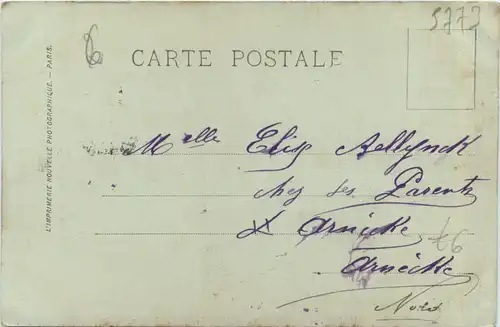 5773
6
CARTE POSTALE
L'IMPRIMERIE NOUVELLE PHOTOGRAPHIQUE. — PARIS.
Melle Elise Aellynck
chez ses Parents
X Arnèke
£6
Arnècke
Nord